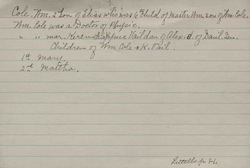 Cole, Wm. 2 son of Elias who was 6th child of Master Wm. son of Wm. Cole.
Wm. Cole was a Doctor of Physic.
" " mar. dau of of Danl. Sen.
Children of Wm Cole & K. Vail
1st Mary.
2nd Martha.